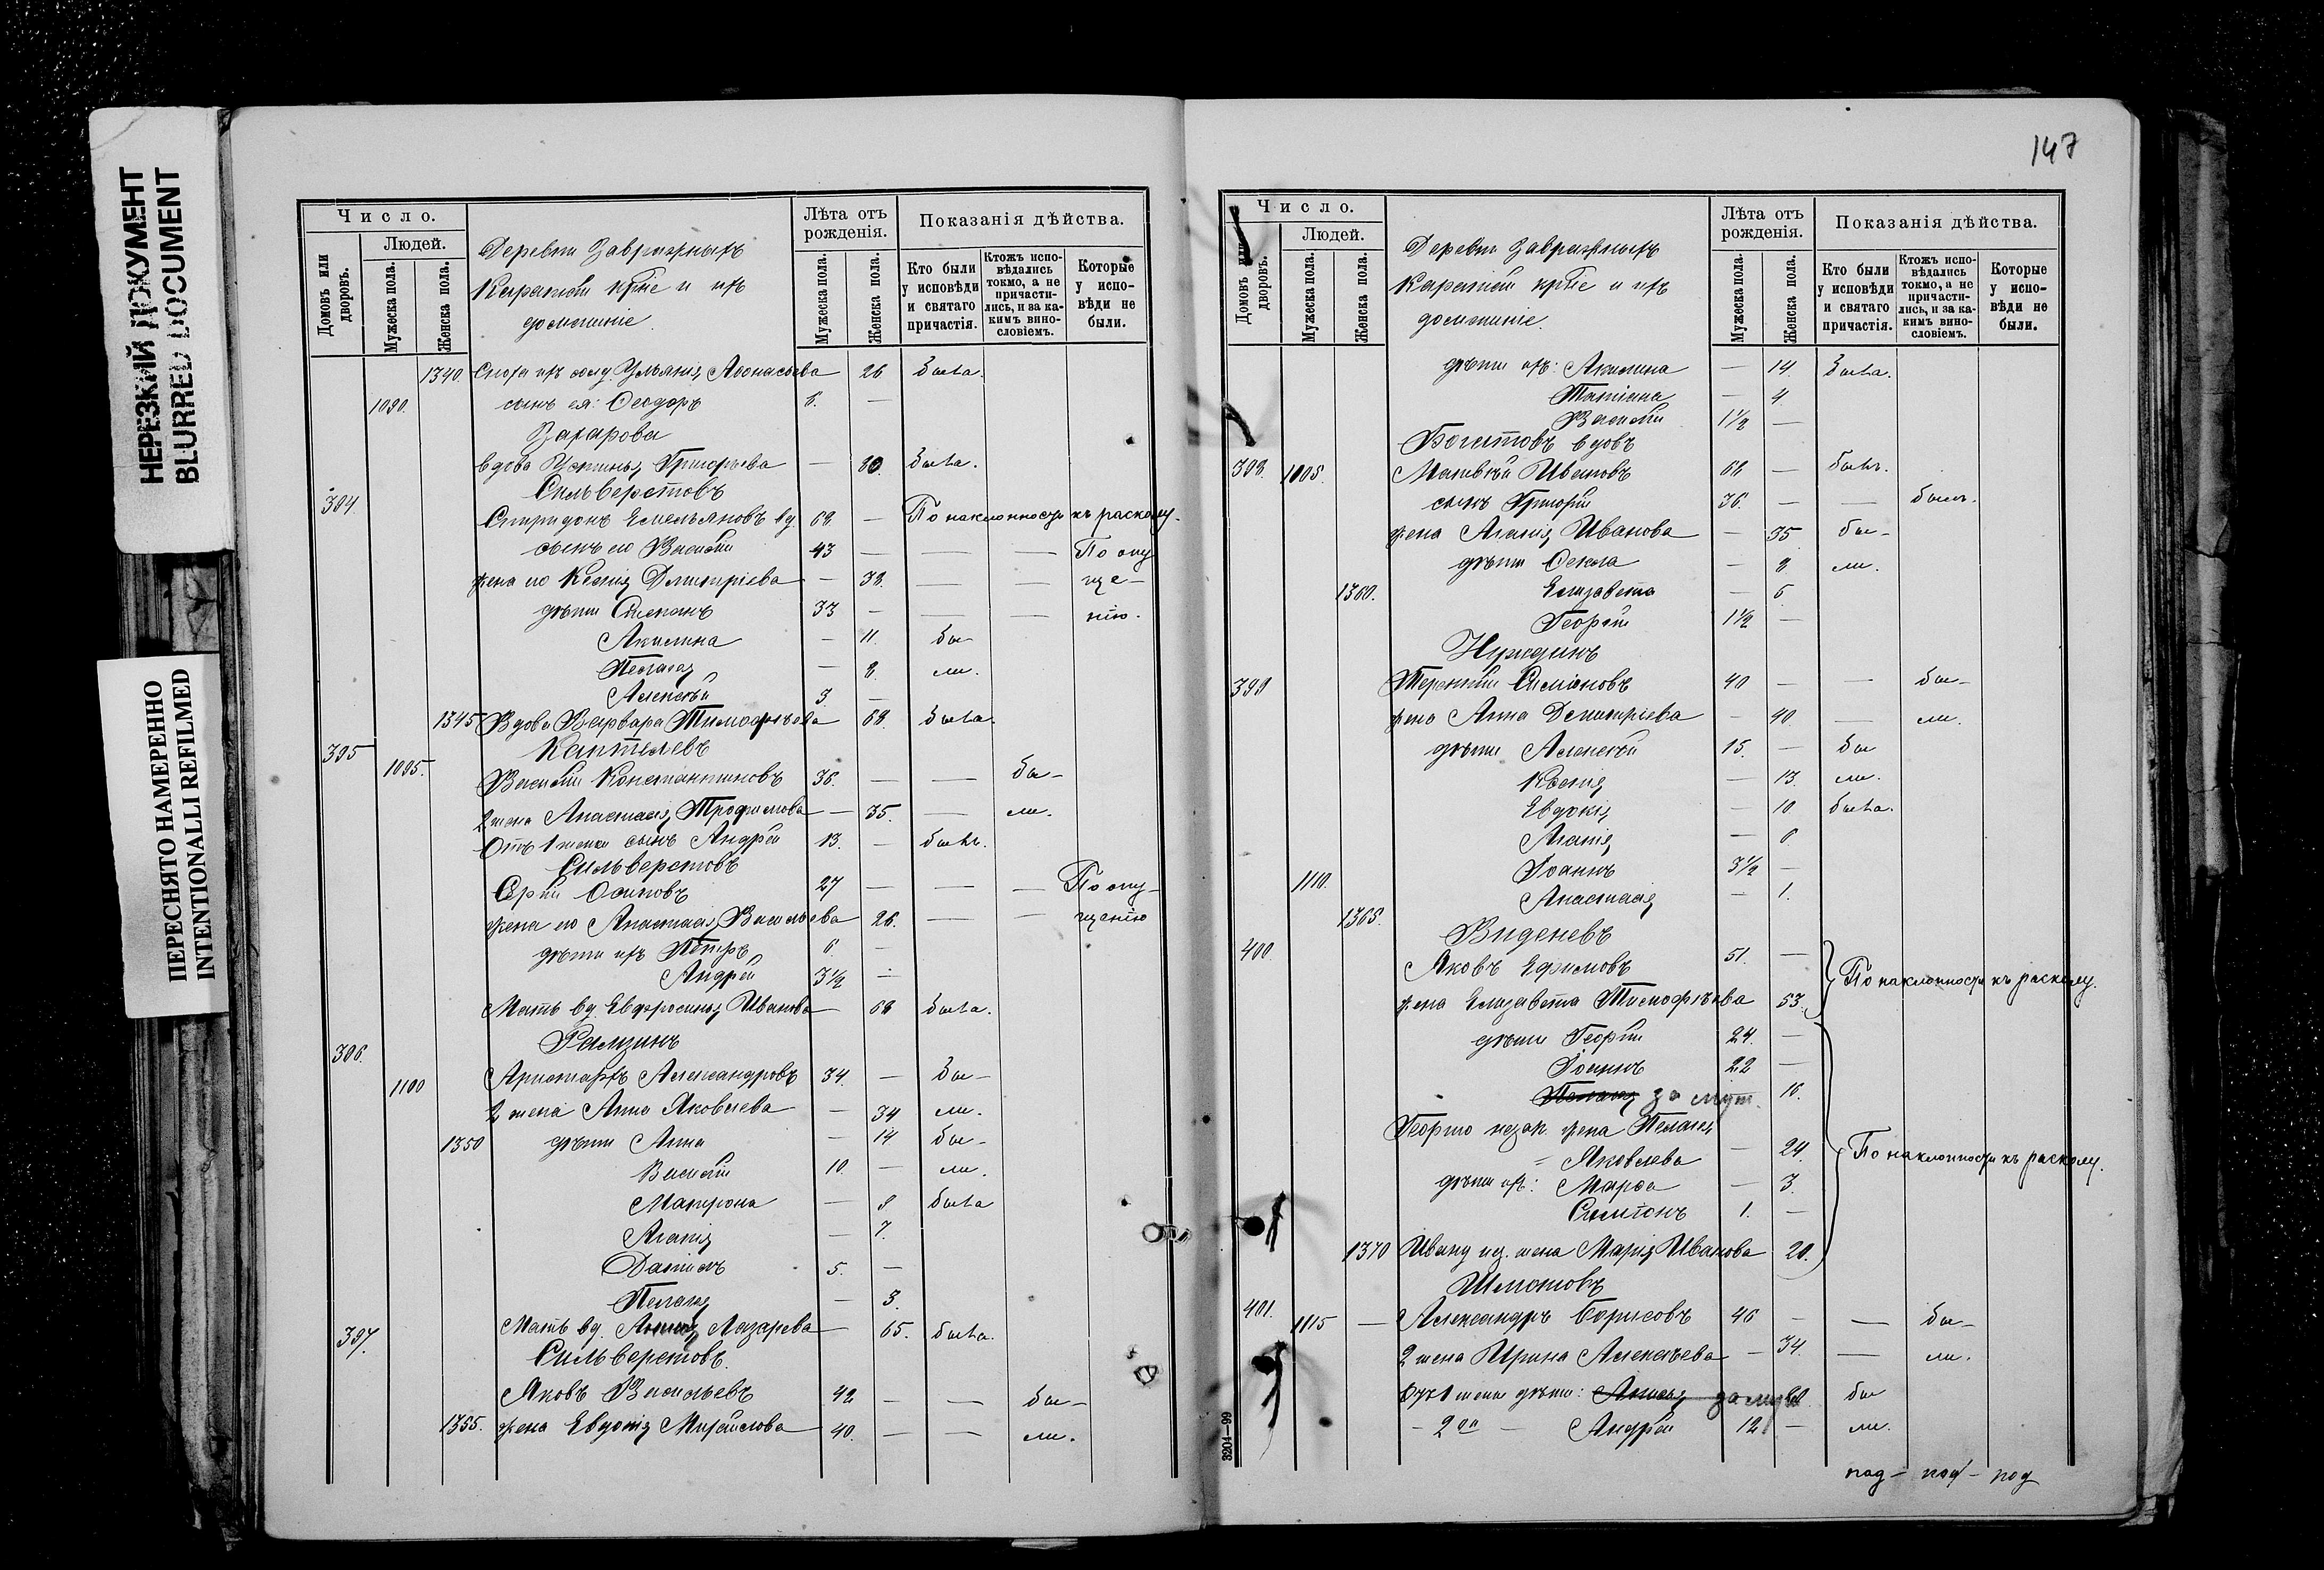 НЕРЕЗКИЙ ДОКУМЕНТ
BLURRED DOCUMENT
ПЕРЕСНЯТО НАМЕРЕННО
INTENTIONALLI REFILMED
Число.
Домовъ или дворовъ.
Людей.
Мужеска пола.
Женска пола.
Деревни Завражныхъ
крѣс и ихъ
домашніе.
Лѣта отъ рожденія.
Мужеска пола.
Женска пола.
Показанія дѣйства.
Кто были у исповѣди и святаго причастія.
Ктожъ исповѣдались токмо, а не причастились, и за какимъ винословіемъ.
Которые у исповѣди не были.
1340. Сноха ихъ солд. Ульянія Аѳонасьева — 26 была.
1090. сынъ ея: Ѳеодоръ —
Захарова
вдова Устинья Григорьева — 80. была.
394 Сильверстовъ
Спиридонъ Емельяновъ вд. 68 — По наклонности къ расколу.
сынъ его Василій 43 — — — По опу
жена его Ксенія Димитріева — 38. — — ще-
дѣти Степанъ — — — нію.
Акилина — 11. бы-
Пелагея — 8. ли.
Алексѣй 3. —
1345 Вдова Варвара Тимофѣева 68 была.
395 Каптелевъ
1095. Василій Константиновъ 36. — — бы-
2 жена Анастасія Трофимова — 35. — ли.
Отъ 1 жены сынъ Андрей 13. — былъ.
Сильверстовъ
Сергій Осиповъ 27 — — — По опу-
жена его Анастасія Васильева 26. — — щенію
дѣти ихъ Петръ 6. —
Андрей 3½ —
Мать вд. Евфросинья Иванова — 68 была.
396. Рамзинъ
1100 Аристархъ Александровъ 34. — бы-
2 жена Анна Яковлева — 34 ли.
1350 дѣти Анна — 14 бы-
Василій 10. — ли.
Матрона — 8 была
Агапія — 7.
Даніилъ 5. —
Пелагея — 3.
Мать вд. Лазарева — 65. была.
397. Сильверстовъ.
Яковъ Васильевъ 42 — — бы-
1355. жена Евдокія Михайлова 40. — — ли.
147
Число.
Домовъ или дворовъ.
Людей.
Мужеска пола.
Женска пола.
Деревни Завражныхъ
крѣс и ихъ
домашніе.
Лѣта отъ рожденія.
Мужеска пола.
Женска пола.
Показанія дѣйства.
Кто были у исповѣди и святаго причастія.
Ктожъ исповѣдались токмо, а не причастились, и за какимъ винословіемъ.
Которые у исповѣди не были.
дѣти ихъ: Акилина — 14. была.
Татіана — 4.
Василій 1½ —
Богатовъ вдовъ
398. 1105. Матвѣй Ивановъ 68 — былъ.
сынъ Григорій 36. — — былъ.
жена Агапія Иванова — 35 бы-
дѣти Ѳекла — 8 ли.
1360. Елизавета — 6.
Георгій 1½ —
399 Терентій Симіоновъ 40 — — бы-
жена Анна Димитріева — 40. — ли.
дѣти Алексѣй 15. — бы
Ксенія — 13. ли.
Евдокія — 10 была.
Агапія — 6.
1110. Іоаннъ 3½ —
Анастасія — 1.
1365. Виденевъ
400. Яковъ Ефимовъ 51. — По наклонности къ расколу.
жена Елизавета Тимофѣева 53.
дѣти Георгій 24. —
Іоаннъ 22 —
Пелагея замуж. 16.
Георгію незак. жена Пелагея
Яковлева — 24. По наклонности къ расколу.
дѣти ихъ: Марѳа — 3.
Симеонъ 1. —
1370 Ивану нез. жена Марія Иванова 20.
401. Шмотовъ
1115 — Александръ Борисовъ 46 — — бы-
2 жена Ирина Алексѣева — 34. — ли.
дѣти: бы
— 2ой — Андрей 12 — ли.
под- под- под
3204—99